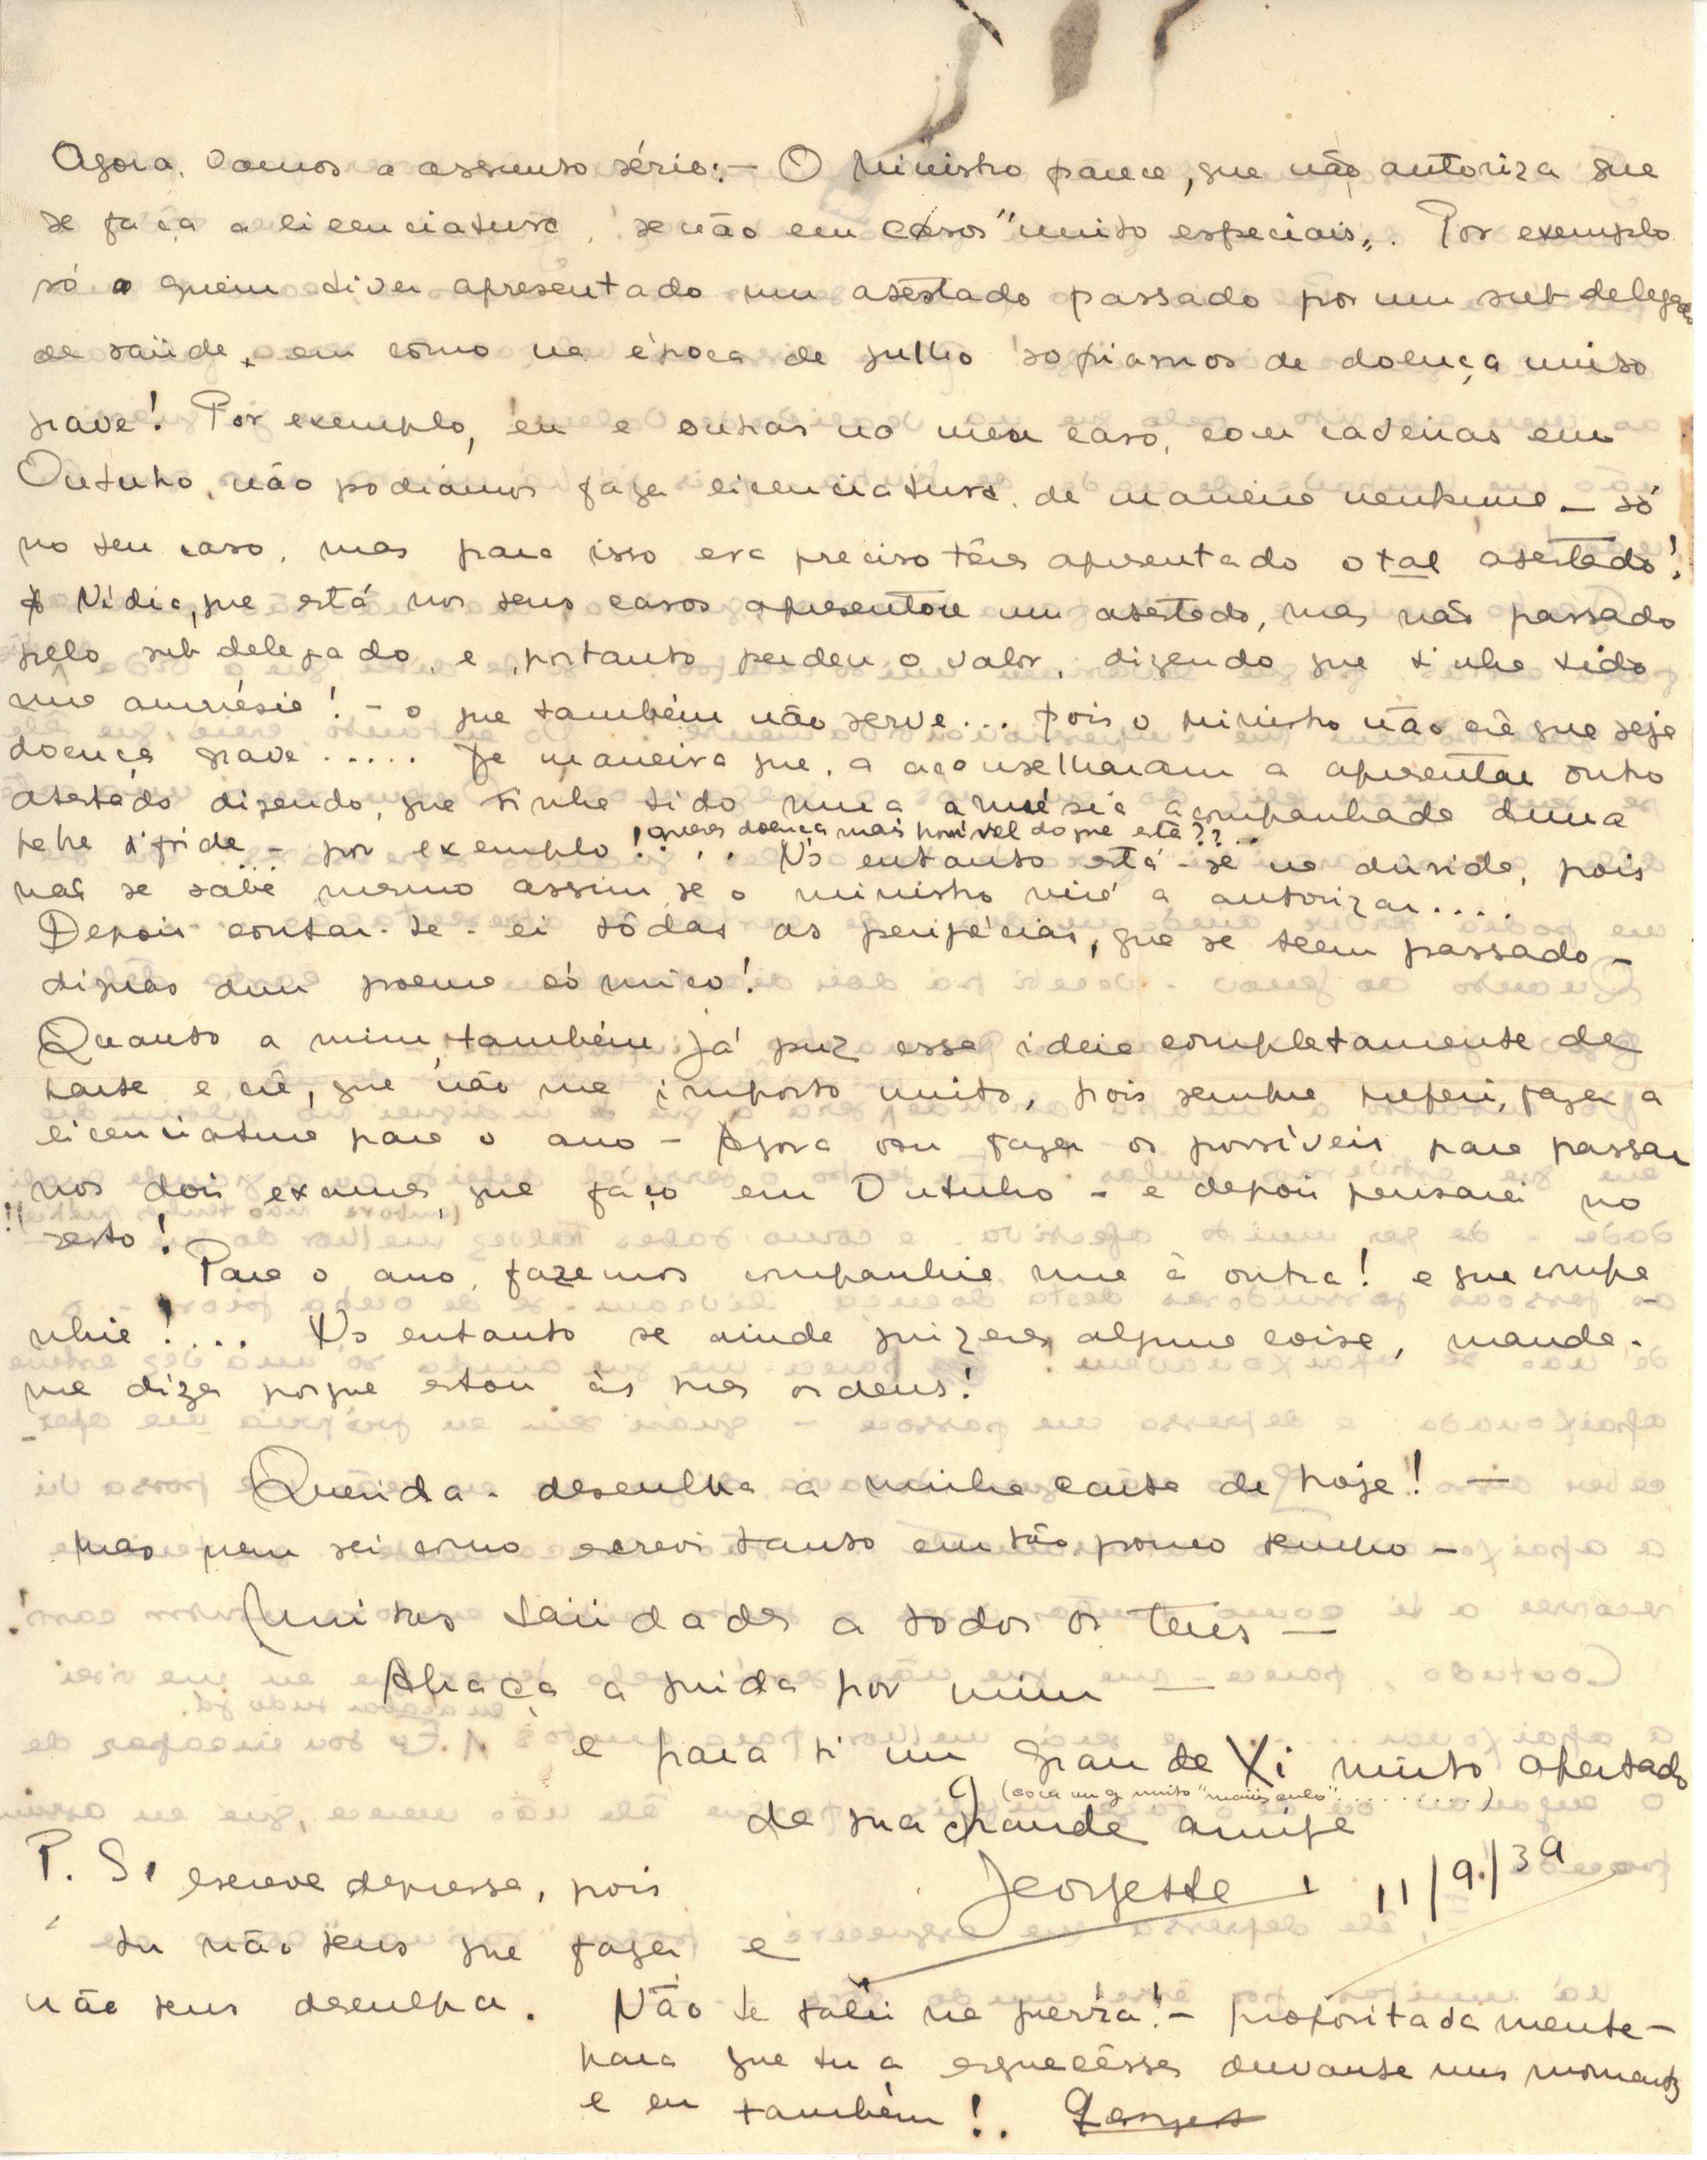 Agora, vamos a assunto sério:- O Ministro parece, que não autoriza que
se faça a licenciatura, senão em casos "muito especiais". Por exemplo
só a quem tiver apresentado um atestado passado por um sub delegado
de saúde, em como na época de julho sofriamos de doença muito
grave! Por exemplo, eu e outras no meu caso, com cadeiras em
Outubro, não podiamos fazer licenciatura de maneira nenhuma - só
no teu caso, mas para isso era preciso têres apresentado o tal atestado!
A Nidia, que está nos teus casos apresentou um atestado, mas não passado
pelo sub delegado, e, portanto perdeu o valor, dizendo que tinha tido
uma amnésia! - o que também não serve... pois o ministro não crê que seja
doença grave..... De maneira que, a aconselharam a apresentar outro
atestado dizendo, que tinha tido uma amnésia acompanhada duma
febre tifoide - por exemplo!... (queres doença mais horrivel do que esta??...
No entanto está-se na duvida, pois
não se sabe mesmo assim, se o ministro virá a autorizar....
Depois contar-te-ei tôdas as peripécias, que se teem passado -
dignas dum poema cómico!
Quanto a mim, também já puz essa ideia completamente de
parte e crê, que não me importo muito, pois sempre preferi, fazer a
licenciatura para o ano - Agora vou fazer os possíveis para passar
nos dois exames, que faço em Outubro - e depois pensarei no
resto!
Para o ano, fazemos companhia uma à outra! e que compa-
nhia!... No entanto se ainda quizeres alguma coisa, manda-
me dizer porque estou às tuas ordens!
Querida - desculpa a minha carta de hoje! -
mas nem sei como escrevi tanto em tão pouco tempo -
Muitas saüdades a todos os teus -
Abraça a Guida por mim -
e para ti um grande Xi muito apertado
(com um g muito "maiúsculo"..........)
da tua Grande amiga
Georgette 11/9/39
P. S. escreve depressa, pois
tu não tens que fazer e
não tens desculpa.
Não te falei na guerra! - propositadamente -
para que tu a esquecêsses durante uns momentos
e eu também!.